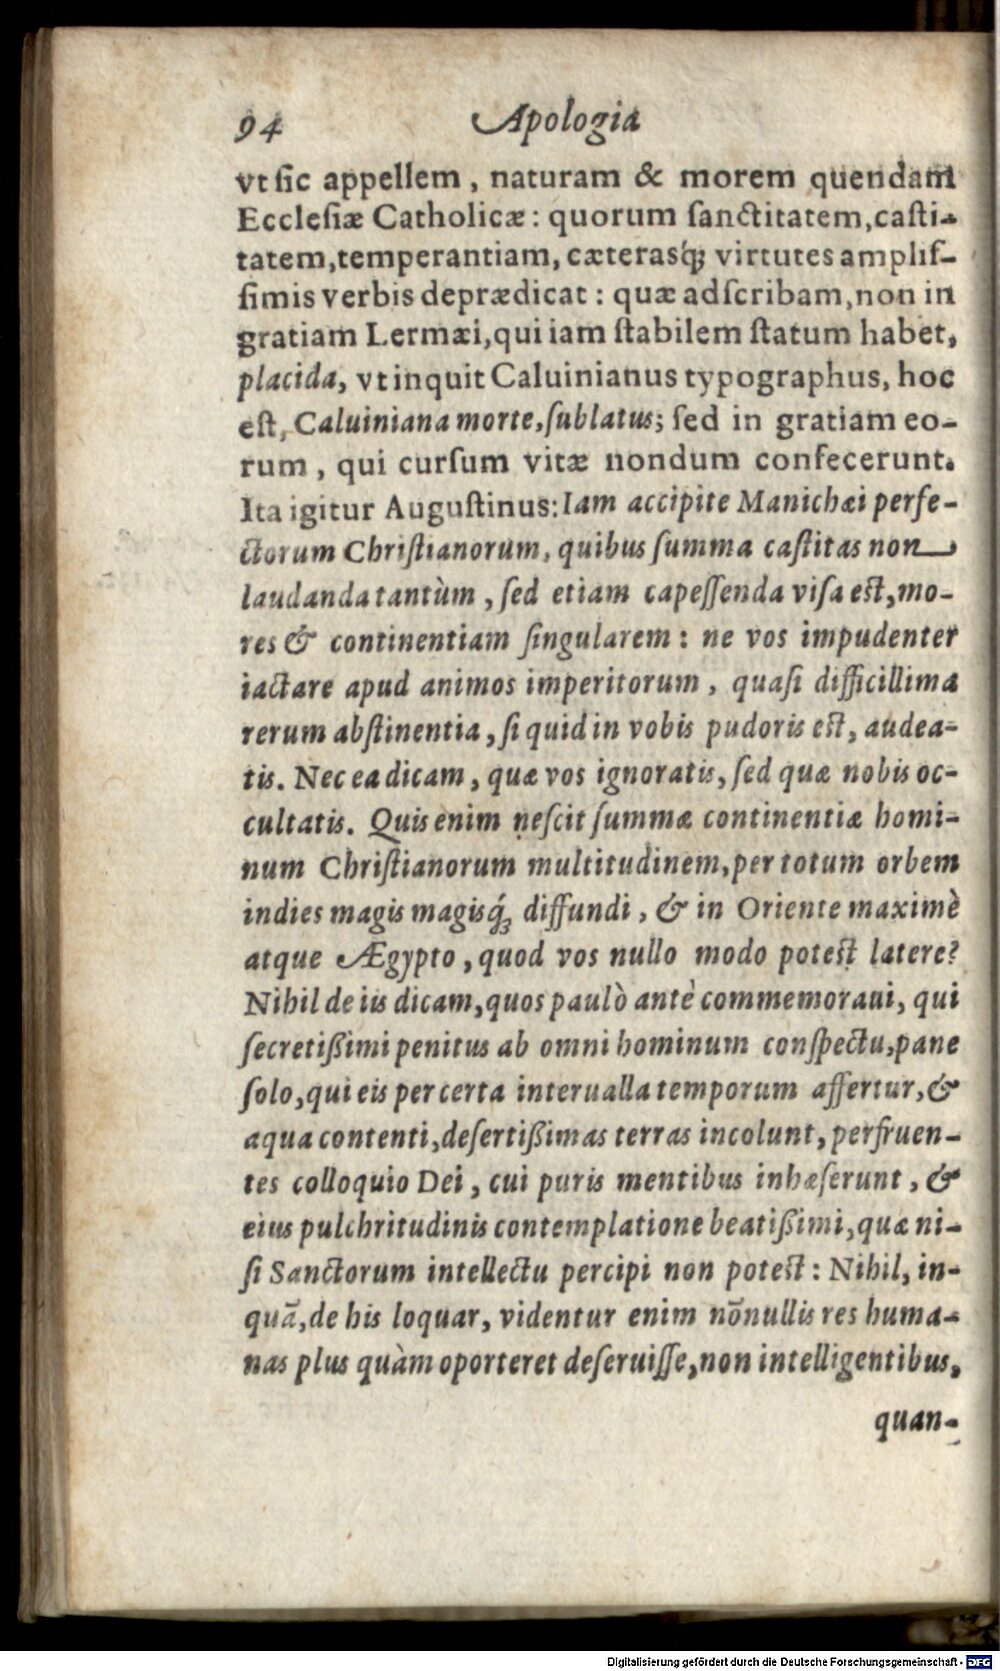 94 Apologia
vt ſic appellem, naturam & morem quendam
Eccleſiæ Catholicæ: quorum ſanctitatem, caſti-
tatem, temperantiam, cæterasq́; virtutes ampliſ-
ſimis verbis deprædicat: quæ adſcribam, non in
gratiam Lermæi, qui iam ſtabilem ſtatum habet,
placida, vt inquit Caluinianus typographus, hoc
eſt, Caluiniana morte, ſublatus; ſed in gratiam eo-
rum, qui curſum vitæ nondum confecerunt.
Ita igitur Auguſtinus: Iam accipite Manichæi perfe-
ctorum Chriſtianorum, quibus ſumma caſtitas non
laudanda tantùm, ſed etiam capeſſenda viſa eſt, mo-
res & continentiam ſingularem: ne vos impudenter
iactare apud animos imperitorum, quaſi difficillima
rerum abſtinentia, ſi quid in vobis pudoris eſt, audea-
tis. Nec ea dicam, quæ vos ignoratis, ſed quæ nobis oc-
cultatis. Quis enim neſcit ſummæ continentiæ homi-
num Chriſtianorum multitudinem, per totum orbem
indies magis magisq́; diffundi, & in Oriente maximè
atque Ægypto, quod vos nullo modo poteſt latere?
Nihil de iis dicam, quos paulò antè commemoraui, qui
ſecretißimi penitus ab omni hominum conſpectu, pane
ſolo, qui eis per certa interualla temporum affertur, &
aqua contenti, deſertißimas terras incolunt, perfruen-
tes colloquio Dei, cui puris mentibus inhæſerunt, &
eius pulchritudinis contemplatione beatißimi, quæ ni-
ſi Sanctorum intellectu percipi non poteſt: Nihil, in-
quā, de his loquar, videntur enim nōnullis res huma-
nas plus quàm oporteret deſeruiſſe, non intelligentibus,
quan-
Digitalisierung gefördert durch die Deutsche Forschungsgemeinschaft - DFG